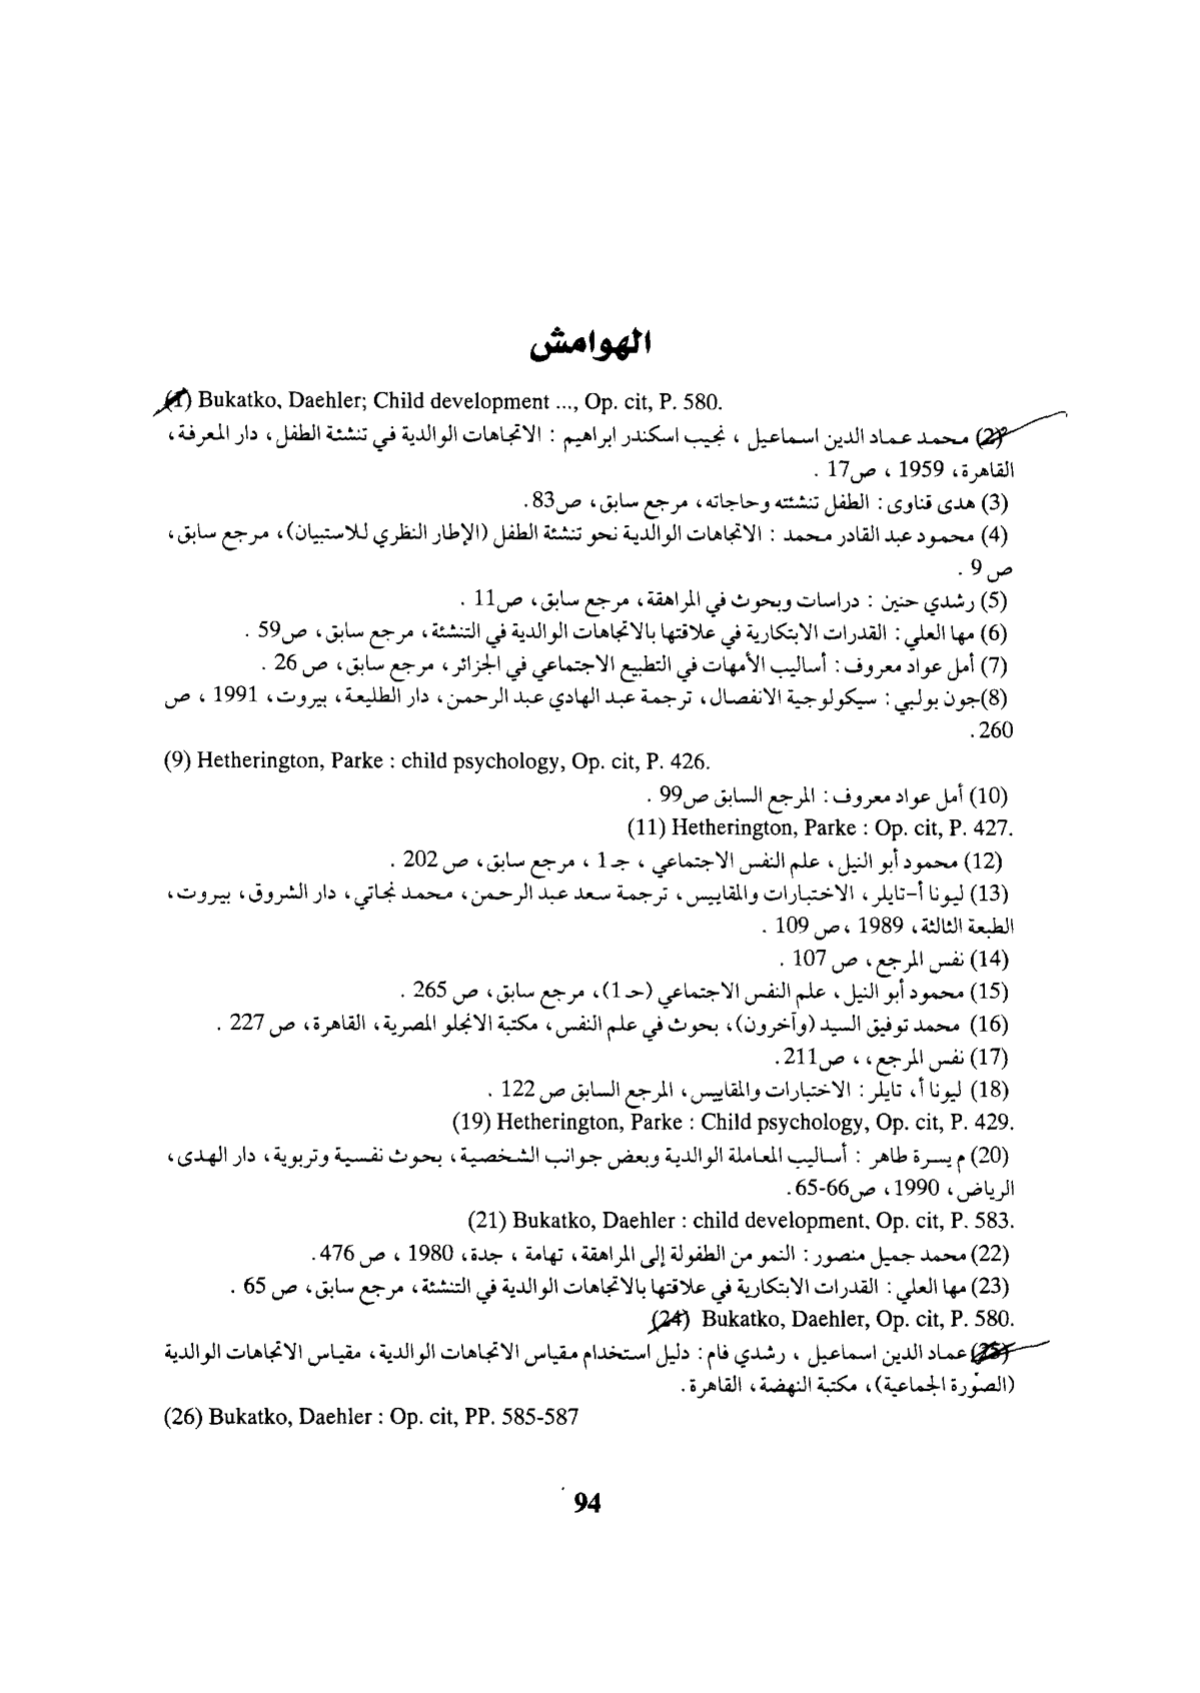 الهوامش
(1) Bukatko, Daehler; Child development ..., Op. cit, P. 580.
(2) محمد عماد الدين اسماعيل ، نجيب اسكندر ابراهيم : الاتجاهات الوالدية في تنشئة الطفل، دار المعرفة،
القاهرة، 1959 ، ص17 .
(3) هدى قناوى : الطفل تنشئته وحاجاته، مرجع سابق، ص83.
(4) محمود عبد القادر محمد : الاتجاهات الوالدية نحو تنشئة الطفل (الإطار النظري للاستبيان)، مرجع سابق،
ص 9 .
(5) رشدي حنين : دراسات وبحوث في المراهقة، مرجع سابق، ص11 .
(6) مها العلي : القدرات الابتكارية في علاقتها بالاتجاهات الوالدية في التنشئة، مرجع سابق، ص59 .
(7) أمل عواد معروف : أساليب الأمهات في التطبيع الاجتماعي في الجزائر، مرجع سابق، ص 26 .
(8)جون بولبي : سيكولوجية الانفصال، ترجمة عبد الهادي عبد الرحمن، دار الطليعة، بيروت، 1991 ، ص
260.
(9) Hetherington, Parke : child psychology, Op. cit, P. 426.
(10) أمل عواد معروف : المرجع السابق ص99 .
(11) Hetherington, Parke : Op. cit, P. 427.
(12) محمود أبو النيل، علم النفس الاجتماعي ، جـ1 ، مرجع سابق، ص 202 .
(13) ليونا أ-تايلر، الاختبارات والمقاييس، ترجمة سعد عبد الرحمن، محمد نجاتي، دار الشروق، بيروت،
الطبعة الثالثة، 1989 ،ص 109 .
(14) نفس المرجع، ص 107 .
(15) محمود أبو النيل، علم النفس الاجتماعي (حـ1)، مرجع سابق، ص 265 .
(16) محمد توفيق السيد (وآخرون)، بحوث في علم النفس، مكتبة الانجلو المصرية، القاهرة، ص 227 .
(17) نفس المرجع، ، ص211.
(18) ليونا أ، تايلر : الاختبارات والمقاييس، المرجع السابق ص 122 .
(19) Hetherington, Parke : Child psychology, Op. cit, P. 429.
(20) م يسرة طاهر : أساليب المعاملة الوالدية وبعض جوانب الشخصية، بحوث نفسية وتربوية، دار الهدى،
الرياض، 1990 ، ص66-65.
(21) Bukatko, Daehler : child development, Op. cit, P. 583.
(22) محمد جميل منصور : النمو من الطفولة إلى المراهقة، تهامة ، جدة، 1980 ، ص 476.
(23) مها العلي : القدرات الابتكارية في علاقتها بالاتجاهات الوالدية في التنشئة، مرجع سابق، ص 65 .
(24) Bukatko, Daehler, Op. cit, P. 580.
(25) عماد الدين اسماعيل ، رشدي فام : دليل استخدام مقياس الاتجاهات الوالدية، مقياس الاتجاهات الوالدية
(الصورة الجماعية)، مكتبة النهضة، القاهرة.
(26) Bukatko, Daehler : Op. cit, PP. 585-587
94